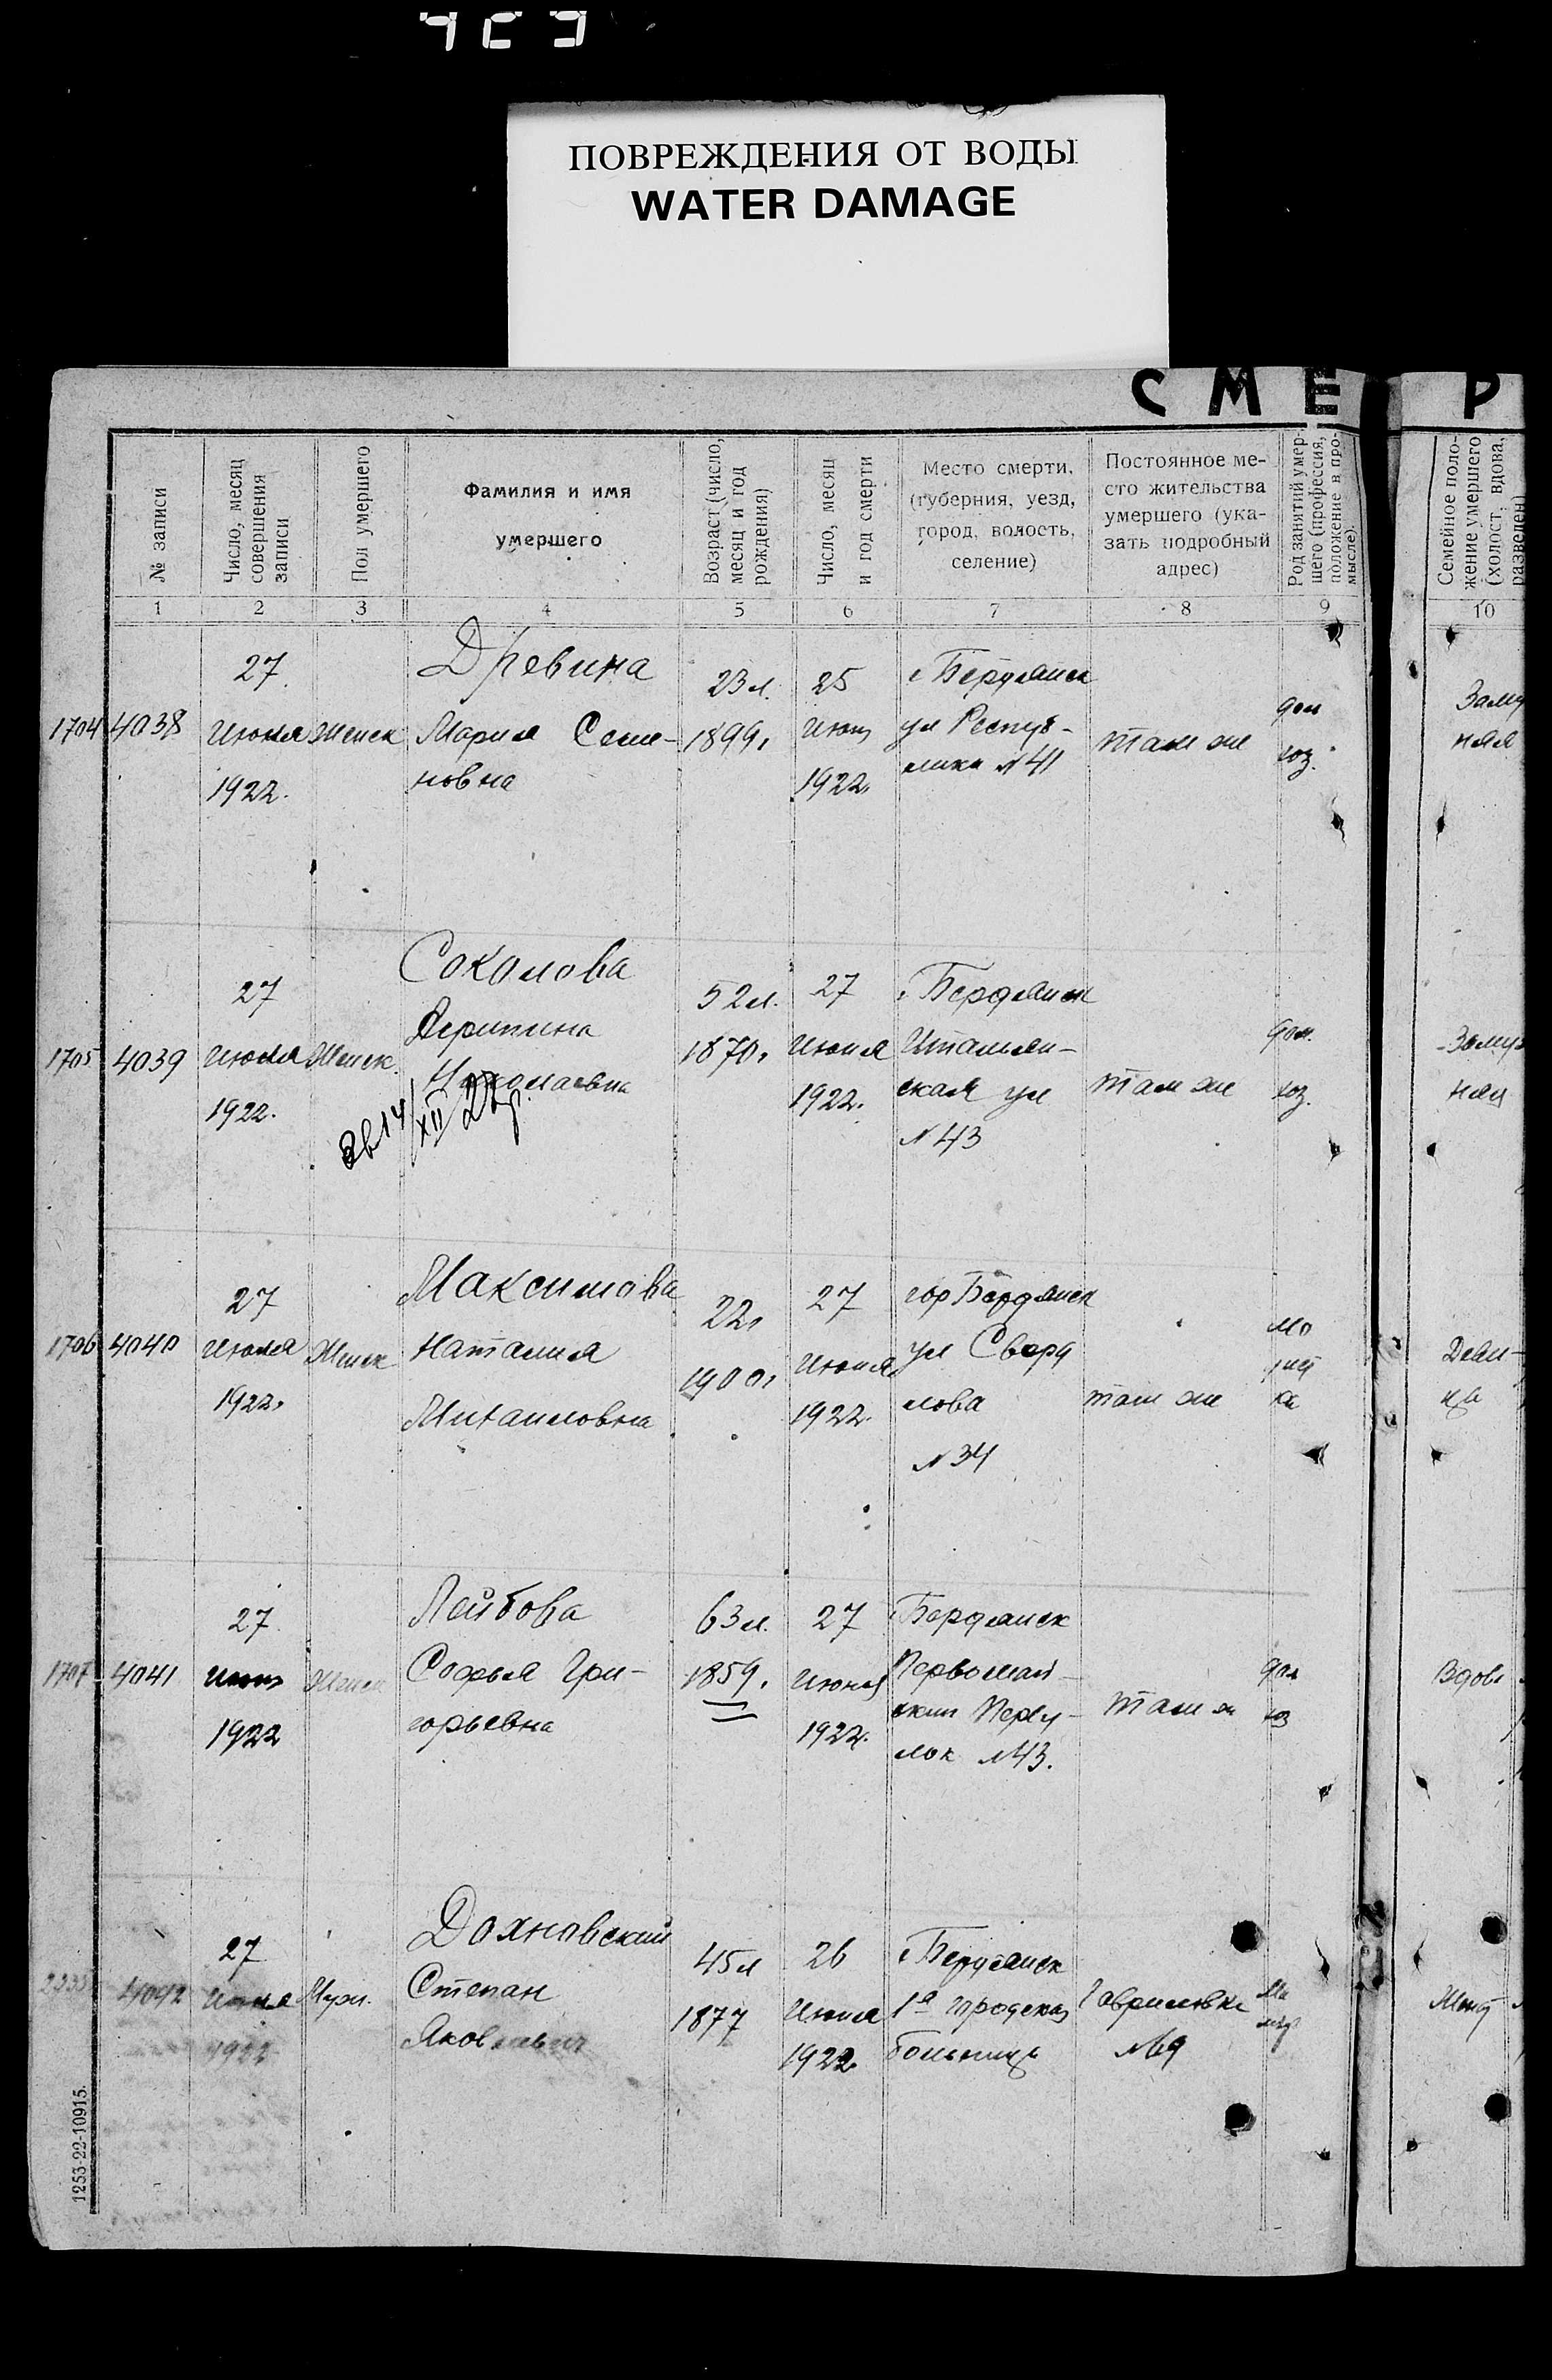 ПОВРЕЖДЕНИЯ ОТ ВОДЫ
WATER DAMAGE
С М Е Р
№ записи
Число, месяц
совершения
записи
Пол умершего
Фамилия и имя
умершего
Возраст (число,
месяц и год
рождения)
Число, месяц
и год смерти
Место смерти,
(губерния, уезд,
город, волость,
селение)
Постоянное ме-
сто жительства
умершего (ука-
зать подробный
адрес)
Род занятий умер-
шего (профессия,
положение в про-
мысле).
Семейное поло-
жение умершего
(холост, вдова,
разведен)
1 2 3 4 5 6 7 8 9 10
1704 4038
27
Июня
1922.
Женск
Древина
Мария Семе-
новна
23 л.
1899.
25
Июня
1922.
г Бердянск
ул Респуб-
лики № 41
там же
дом
хоз.
Заму
няя
1705 4039
27
Июня
1922.
Женск.
Соколова
Николаевна
14/XII
52 л.
1870.
27
Июня
1922.
Бердянск
Итальян-
ская ул
№ 43
там же
дом.
хоз.
Заму
няя
1706 4040
27
Июня
1922.
Женск
Максимова
Наталия
Михаиловна
22.
1900.
27
Июня
1922.
гор Бердянск
ул Сверд
лова
№ 34
там же
Деви-
ца
1707 4041
27
Июня
1922
Женск
Лейбова
Софья Гри-
горьевна
63 л.
1859.
27
Июня
1922.
Бердянск
Первомай-
ский Переу-
лок № 43.
там ж
дом
хоз
Вдова
4042
27
Июня
1922
Муж.
Дохновский
Степан
Яковлевич
45 л
1877
26
Июня
1922.
г Бердянск
1я городская
больница
Гавриловка
№ 69
1253-22-10915.